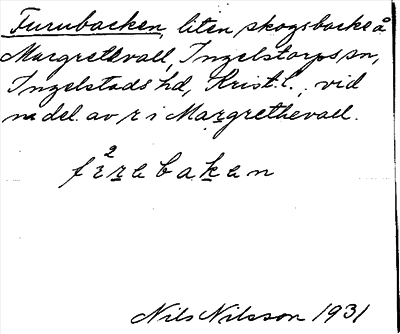 Furubacken, liten skogsbacke å
Margrethevall, Ingelstorps sn,
Ingelstads hd, Krist. l., vid
n:a del. av r i Margrethevall.
Nils Nilsson 1931